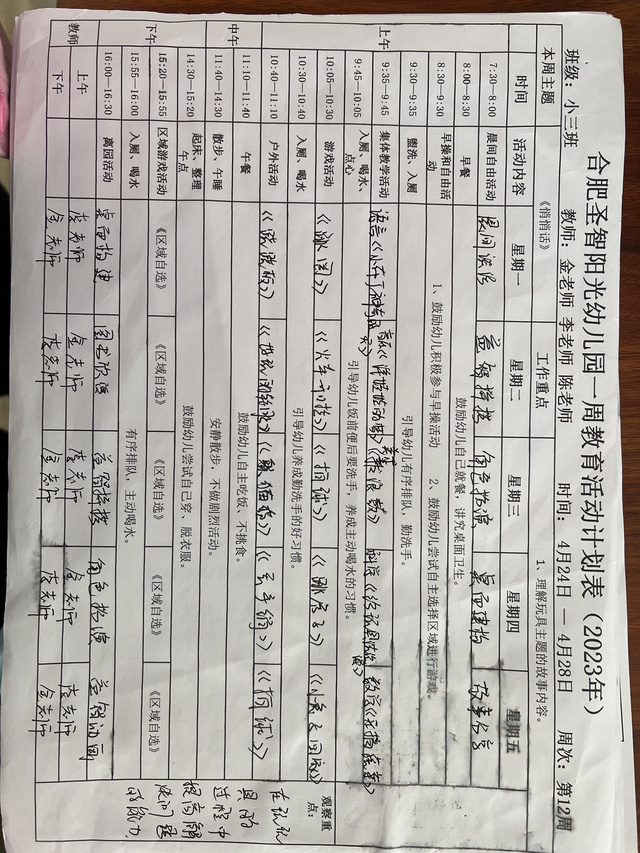 合肥圣智阳光幼儿园一周教育活动计划表（2023年）
班级：小三班 教师：金老师 李老师 陈老师 时间：4月24日 — 4月28日 周次：第12周
本周主题 《悄悄话》 工作重点 1、理解玩具主题的故事内容。
时间 活动内容 星期一 星期二 星期三 星期四 星期五
上午
7:30—8:00 晨间自由活动 晨间谈话 益智拼搭 角色扮演 桌面建构 故事分享
8:00—8:30 早餐 鼓励幼儿自己就餐，讲究桌面卫生。
8:30—9:30 早操和自由活动 1、鼓励幼儿积极参与早操活动 2、鼓励幼儿尝试自主选择区域进行游戏。
9:30—9:35 盥洗、入厕 引导幼儿有序排队，勤洗手。
9:35—9:45 集体教学活动 语言 科学 数学
9:45—10:05 入厕、喝水、点心 引导幼儿饭前便后要洗手，养成主动喝水的习惯。
10:05—10:30 游戏活动 《火车开啦》
10:30—10:40 入厕、喝水 引导幼儿养成勤洗手的好习惯。
10:40—11:10 户外活动 《滑滑梯》
中午
11:10—11:40 午餐 鼓励幼儿自主吃饭，不挑食。
11:40—14:30 散步、午睡 安静散步，不做剧烈活动。
下午
14:30—15:20 起床、整理 午点 鼓励幼儿尝试自己穿、脱衣服。
15:20—15:55 区域游戏活动 《区域自选》 《区域自选》 《区域自选》 《区域自选》 《区域自选》
15:55—16:00 入厕、喝水 有序排队，主动喝水。
16:00—16:30 离园活动 桌面构建 图书欣赏 益智拼搭 角色扮演 益智动画
教师
上午 金老师 金老师
下午 金老师 金老师 金老师
观察重点：
在玩玩具的过程中提高解决问题的能力。